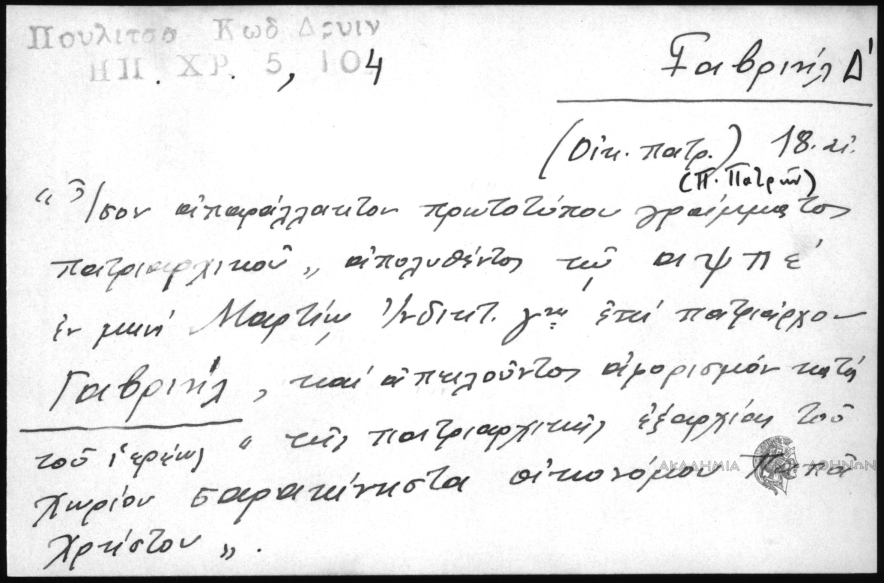 Πουλιτσα Κωδ Δρυιν
ΗΠ. ΧΡ. 5, 104
Γαβριήλ Δ'
(Οἰκ. πατρ.) 18. αἰ.
(Π. Πατρῶν)
"Ἴσον ἀπαράλλακτον πρωτοτύπου γράμματος
πατριαρχικοῦ„ ἀπολυθέντος τῷ αψπέ
ἐν μηνί Μαρτίῳ Ἰνδικτ. γῃ ἐπί πατριάρχου
Γαβριήλ, καί ἀπειλοῦντος ἀφορισμόν κατά
τοῦ ἱερέως "τῆς πατριαρχικῆς ἐξαρχίας τοῦ
χωρίου σαρακίνηστα οἰκονόμου Παπᾶ
Χρίστου„.
ΑΚΑΔΗΜΙΑ ΑΘΗΝΩΝ